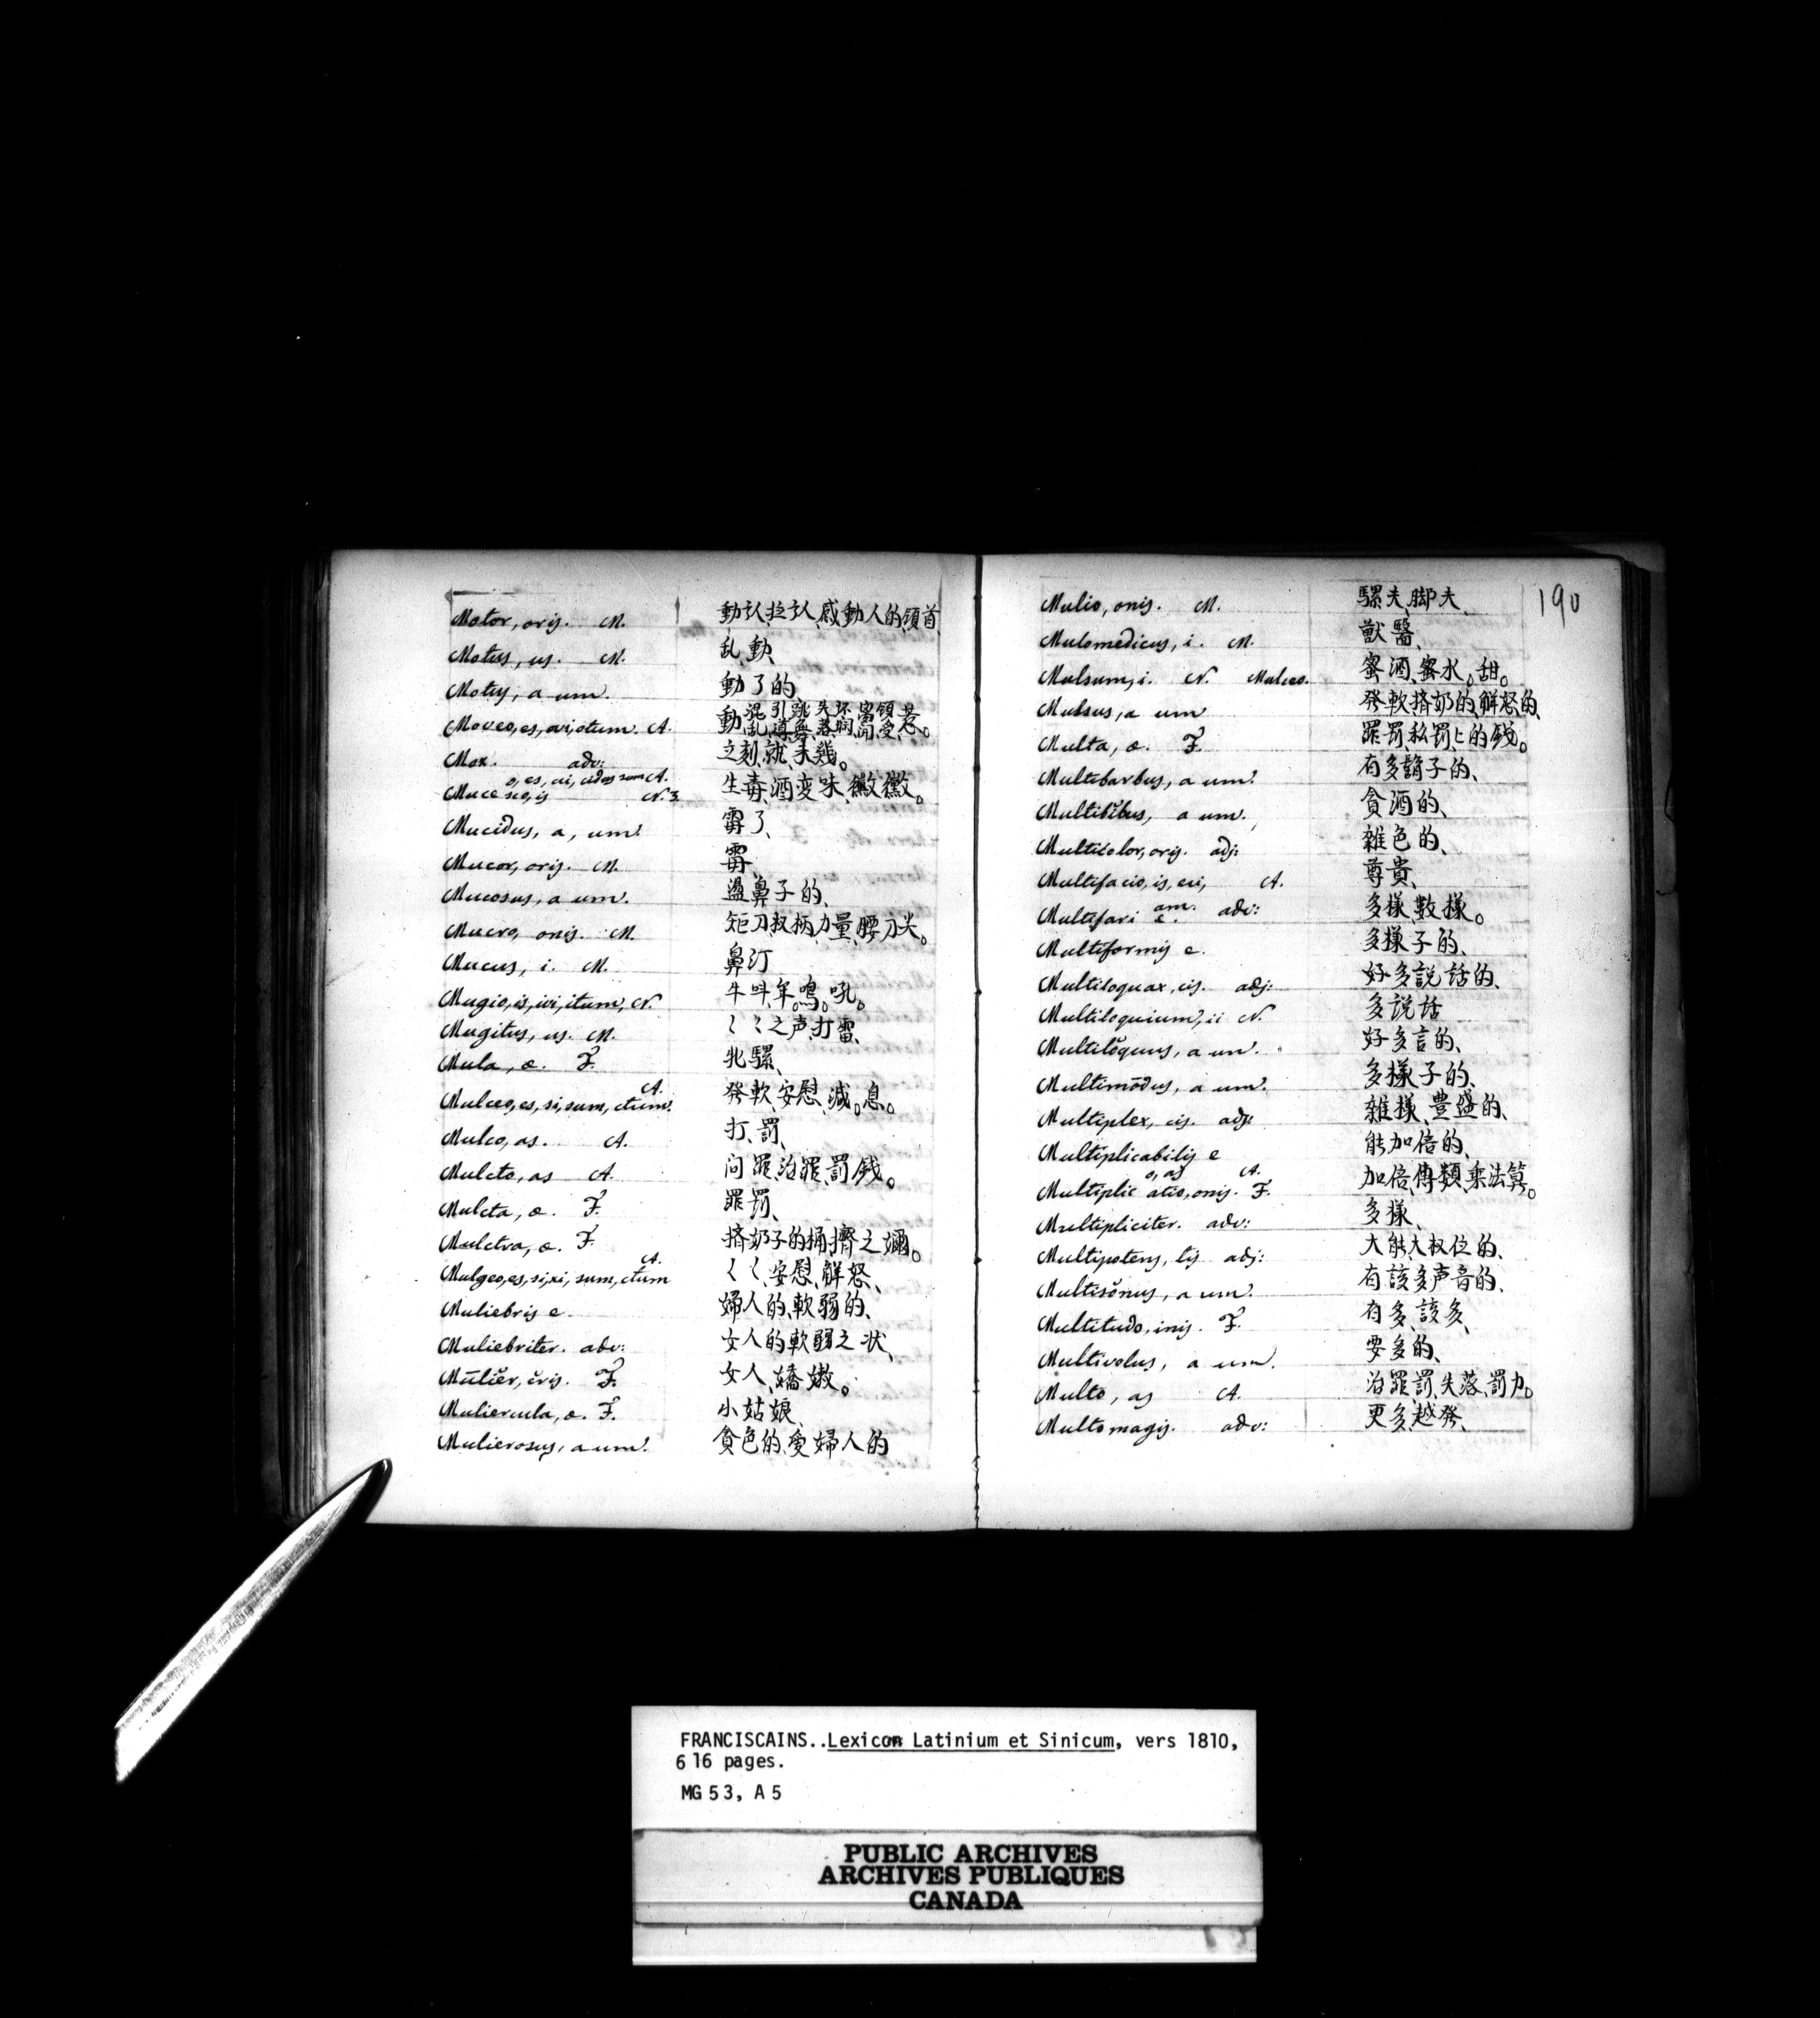 Motor, oris. M. 動认,拉认,感動人的,領首
Motus, us. M. 乱,動
Motus, a um. 動了的
Moveo, es, ovi, otum. A. 動
Mox. adv: 之刻,就,未幾。
Muce o, es, ui, A.
sco, is N. 3 生毒,酒变味,黴,黴。
Mucidus, a, um. 霉了、
Mucor, oris. M. 霉、
Mucosus, a um. 盪鼻子的、
Mucro, onis. M. 力量,腰刀尖。
Mucus, i. M. 鼻汀
Mugio, is, ivi, itum, N. 牛呌,牟。鳴。吼。
Mugitus, us. M. 〻〻之声,打雷、
Mula, æ. F. 牝騾、
Mulceo, es, si, sum, ctum. A. 發軟,安慰,減。息。
Mulco, as. A. 打、罰、
Mulcto, as A. 问罪,治罪,罰錢。
Mulcta, æ. F. 罪罰、
Mulctra, æ. F. 挤奶子的桶,擠之
Mulgeo, es, si, xi, sum, ctum A. 〻〻,安慰,解怒、
Muliebris e. 婦人的,軟弱的、
Muliebriter. adv: 女人的軟弱之状、
Mŭlĭĕr, ĕris. F. 女人,嬌嫩。
Muliercula, æ. F. 小姑娘、
Mulierosus, a um. 貪色的,愛婦人的
190
Mulio, onis. M. 騾夫,脚夫、
Mulomedicus, i. M. 獸醫、
Mulsum, i. N. Mulceo. 蜜酒,蜜水。甜。
Mulsus, a um 發軟,挤奶的,解怒的、
Multa, æ. F. 罪罰,私罰上的錢。
Multibarbus, a um. 有多鬍子的、
Multibĭbus, a um. 貪酒的、
Multicolor, oris. adj: 雜色的、
Multifacio, is, eci, A. 尊貴、
Multifari am. e. adv: 多樣,數樣。
Multiformis e. 多樣子的、
Multiloquax, cis. adj: 好多説話的、
Multiloquium, ii N. 多説话
Multilŏquus, a um. 好多言的、
Multimŏdus, a um. 多樣子的、
Multiplex, cis. adj: 雜樣,豊盛的、
Multiplicabilis e 能加倍的、
Multiplic o, as A.
atio, onis. F. 加倍,傳類,乘法算。
Multipliciter. adv: 多樣、
Multipotens, tis adj: 大能,大权位的、
Multisŏnus, a um. 有該多声音的、
Multitudo, inis. F. 有多,該多、
Multivolus, a um. 要多的、
Multo, as A. 治罪罰,失落,罰力。
Multo magis. adv: 更多,越發、
FRANCISCAINS..Lexicon Latinium et Sinicum, vers 1810,
616 pages.
MG 53, A 5
PUBLIC ARCHIVES
ARCHIVES PUBLIQUES
CANADA